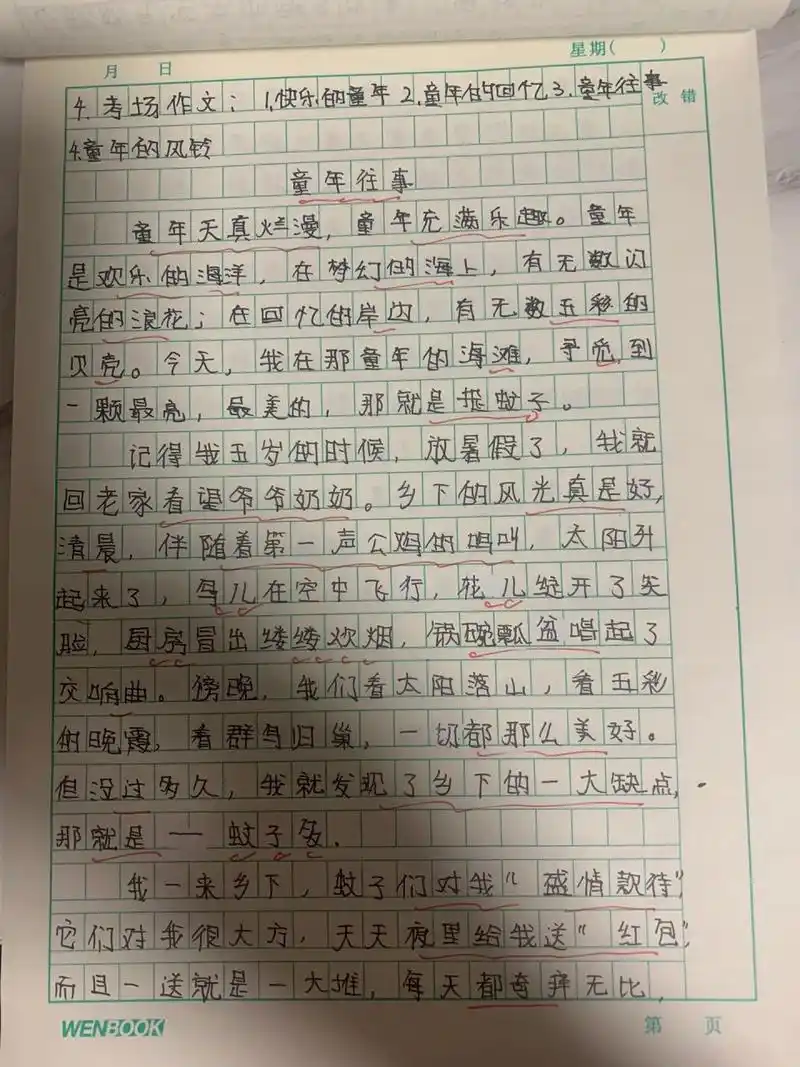 月 日 星期( )
4.考场作文：1.快乐的童年 2.童年的回忆 3.童年往事
改 错
4.童年的风铃
童年往事
童年天真烂漫，童年充满乐趣。童年
是欢乐的海洋，在梦幻的海上，有无数闪
亮的浪花；在回忆的岸边，有无数五彩的
贝壳。今天，我在那童年的海滩，寻觅到
一颗最亮，最美的，那就是捉蚊子。
记得我五岁的时候，放暑假了，我就
回老家看望爷爷奶奶。乡下的风光真是好，
清晨，伴随着第一声公鸡的鸣叫，太阳升
起来了，鸟儿在空中飞行，花儿绽开了笑
脸，厨房冒出缕缕炊烟，锅碗瓢盆唱起了
交响曲。傍晚，我们看太阳落山，看五彩
的晚霞，看群鸟归巢，一切都那么美好。
但没过多久，我就发现了乡下的一大缺点，
那就是——蚊子多.
我一来乡下，蚊子们对我“盛情款待”，
它们对我很大方，天天夜里给我送“红包”，
而且一送就是一大堆，每天都奇痒无比，
WENBOOK 第 页